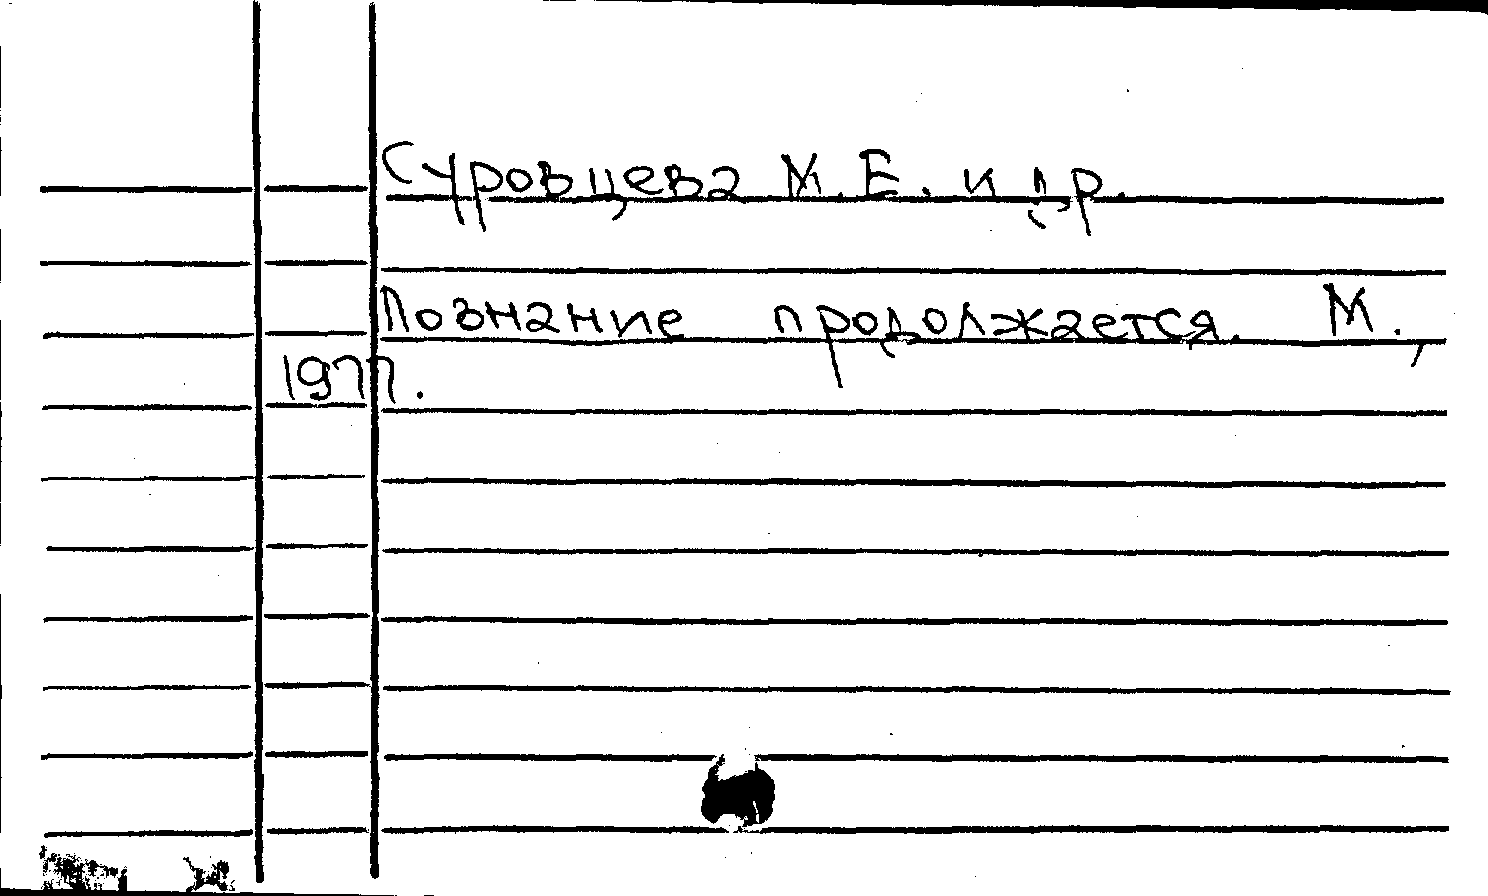 Суровцева М.Е. и др.
Познание продолжается. М.,
1977.